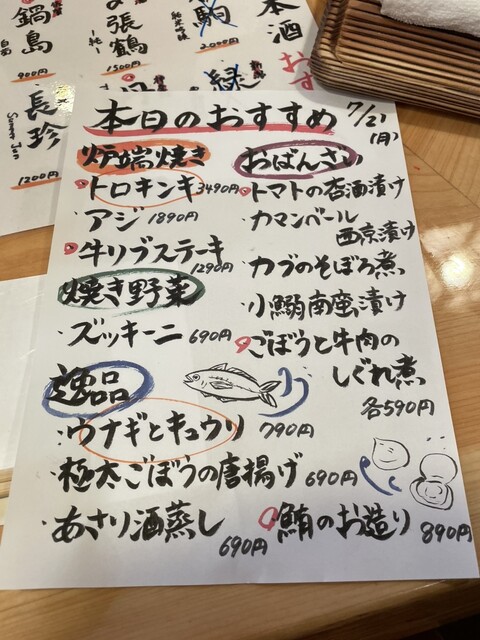 鍋島
900円
張鶴
1500円
2000円
緑
本酒
おす
長珍
Summer Jun
1200円
本日のおすすめ
7/21
(月)
炉端焼き
・トロキンキ 3490円
・アジ 1890円
・牛リブステーキ
1290円
焼き野菜
・ズッキーニ 690円
逸品
・ウナギとキュウリ 790円
・極太ごぼうの唐揚げ 690円
・あさり酒蒸し
690円
おばんざい
・トマトの杏酒漬け
・カマンベール
西京漬け
・カブのそぼろ煮
・小鰯南蛮漬け
・ごぼうと牛肉の
しぐれ煮
各590円
・鮪のお造り 890円